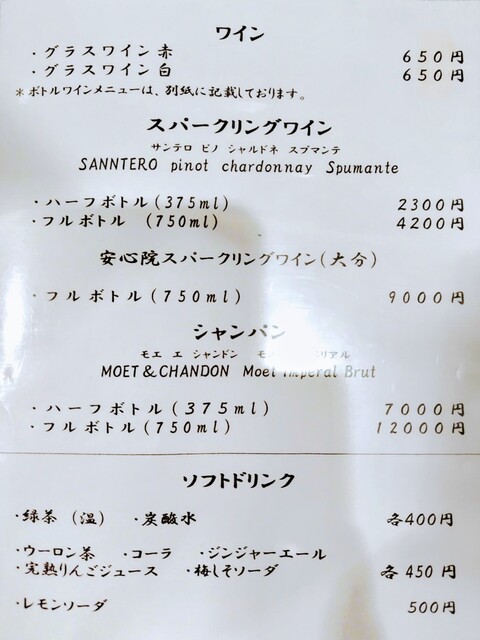 ワイン
・グラスワイン赤 650円
・グラスワイン白 650円
＊ボトルワインメニューは、別紙に記載しております。
スパークリングワイン
サンテロ ピノ シャルドネ スプマンテ
SANNTERO pinot chardonnay Spumante
・ハーフボトル(375ml) 2300円
・フルボトル (750ml) 4200円
安心院スパークリングワイン(大分)
・フルボトル(750ml) 9000円
シャンパン
モエ エ シャンドン
MOET＆CHANDON Moet Imperal Brut
・ハーフボトル(375ml) 7000円
・フルボトル(750ml) 12000円
ソフトドリンク
・緑茶 (温) ・炭酸水 各400円
・ウーロン茶 ・コーラ ・ジンジャーエール
・完熟りんごジュース ・梅しそソーダ 各450円
・レモンソーダ 500円